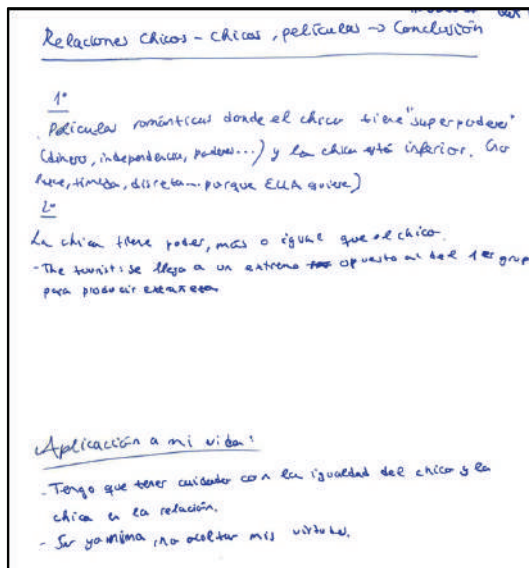 Relaciones chicos - chicas, películas → Conclusión
1º
. Películas románticas donde el chico tiene "superpoderes"
(dinero, independencia, poderes...) y la chica está inferior. (no
, timidez, discreta... porque ELLA quiere)
2º
La chica tiene poder, más o igual que el chico.
- The tourist: se llega a un extremo opuesto al del 1er grupo
para producir extrañeza
Aplicación a mi vida:
- Tengo que tener cuidado con la igualdad del chico y la
chica en la relación.
- Ser yo misma, no ocultar mis virtudes.